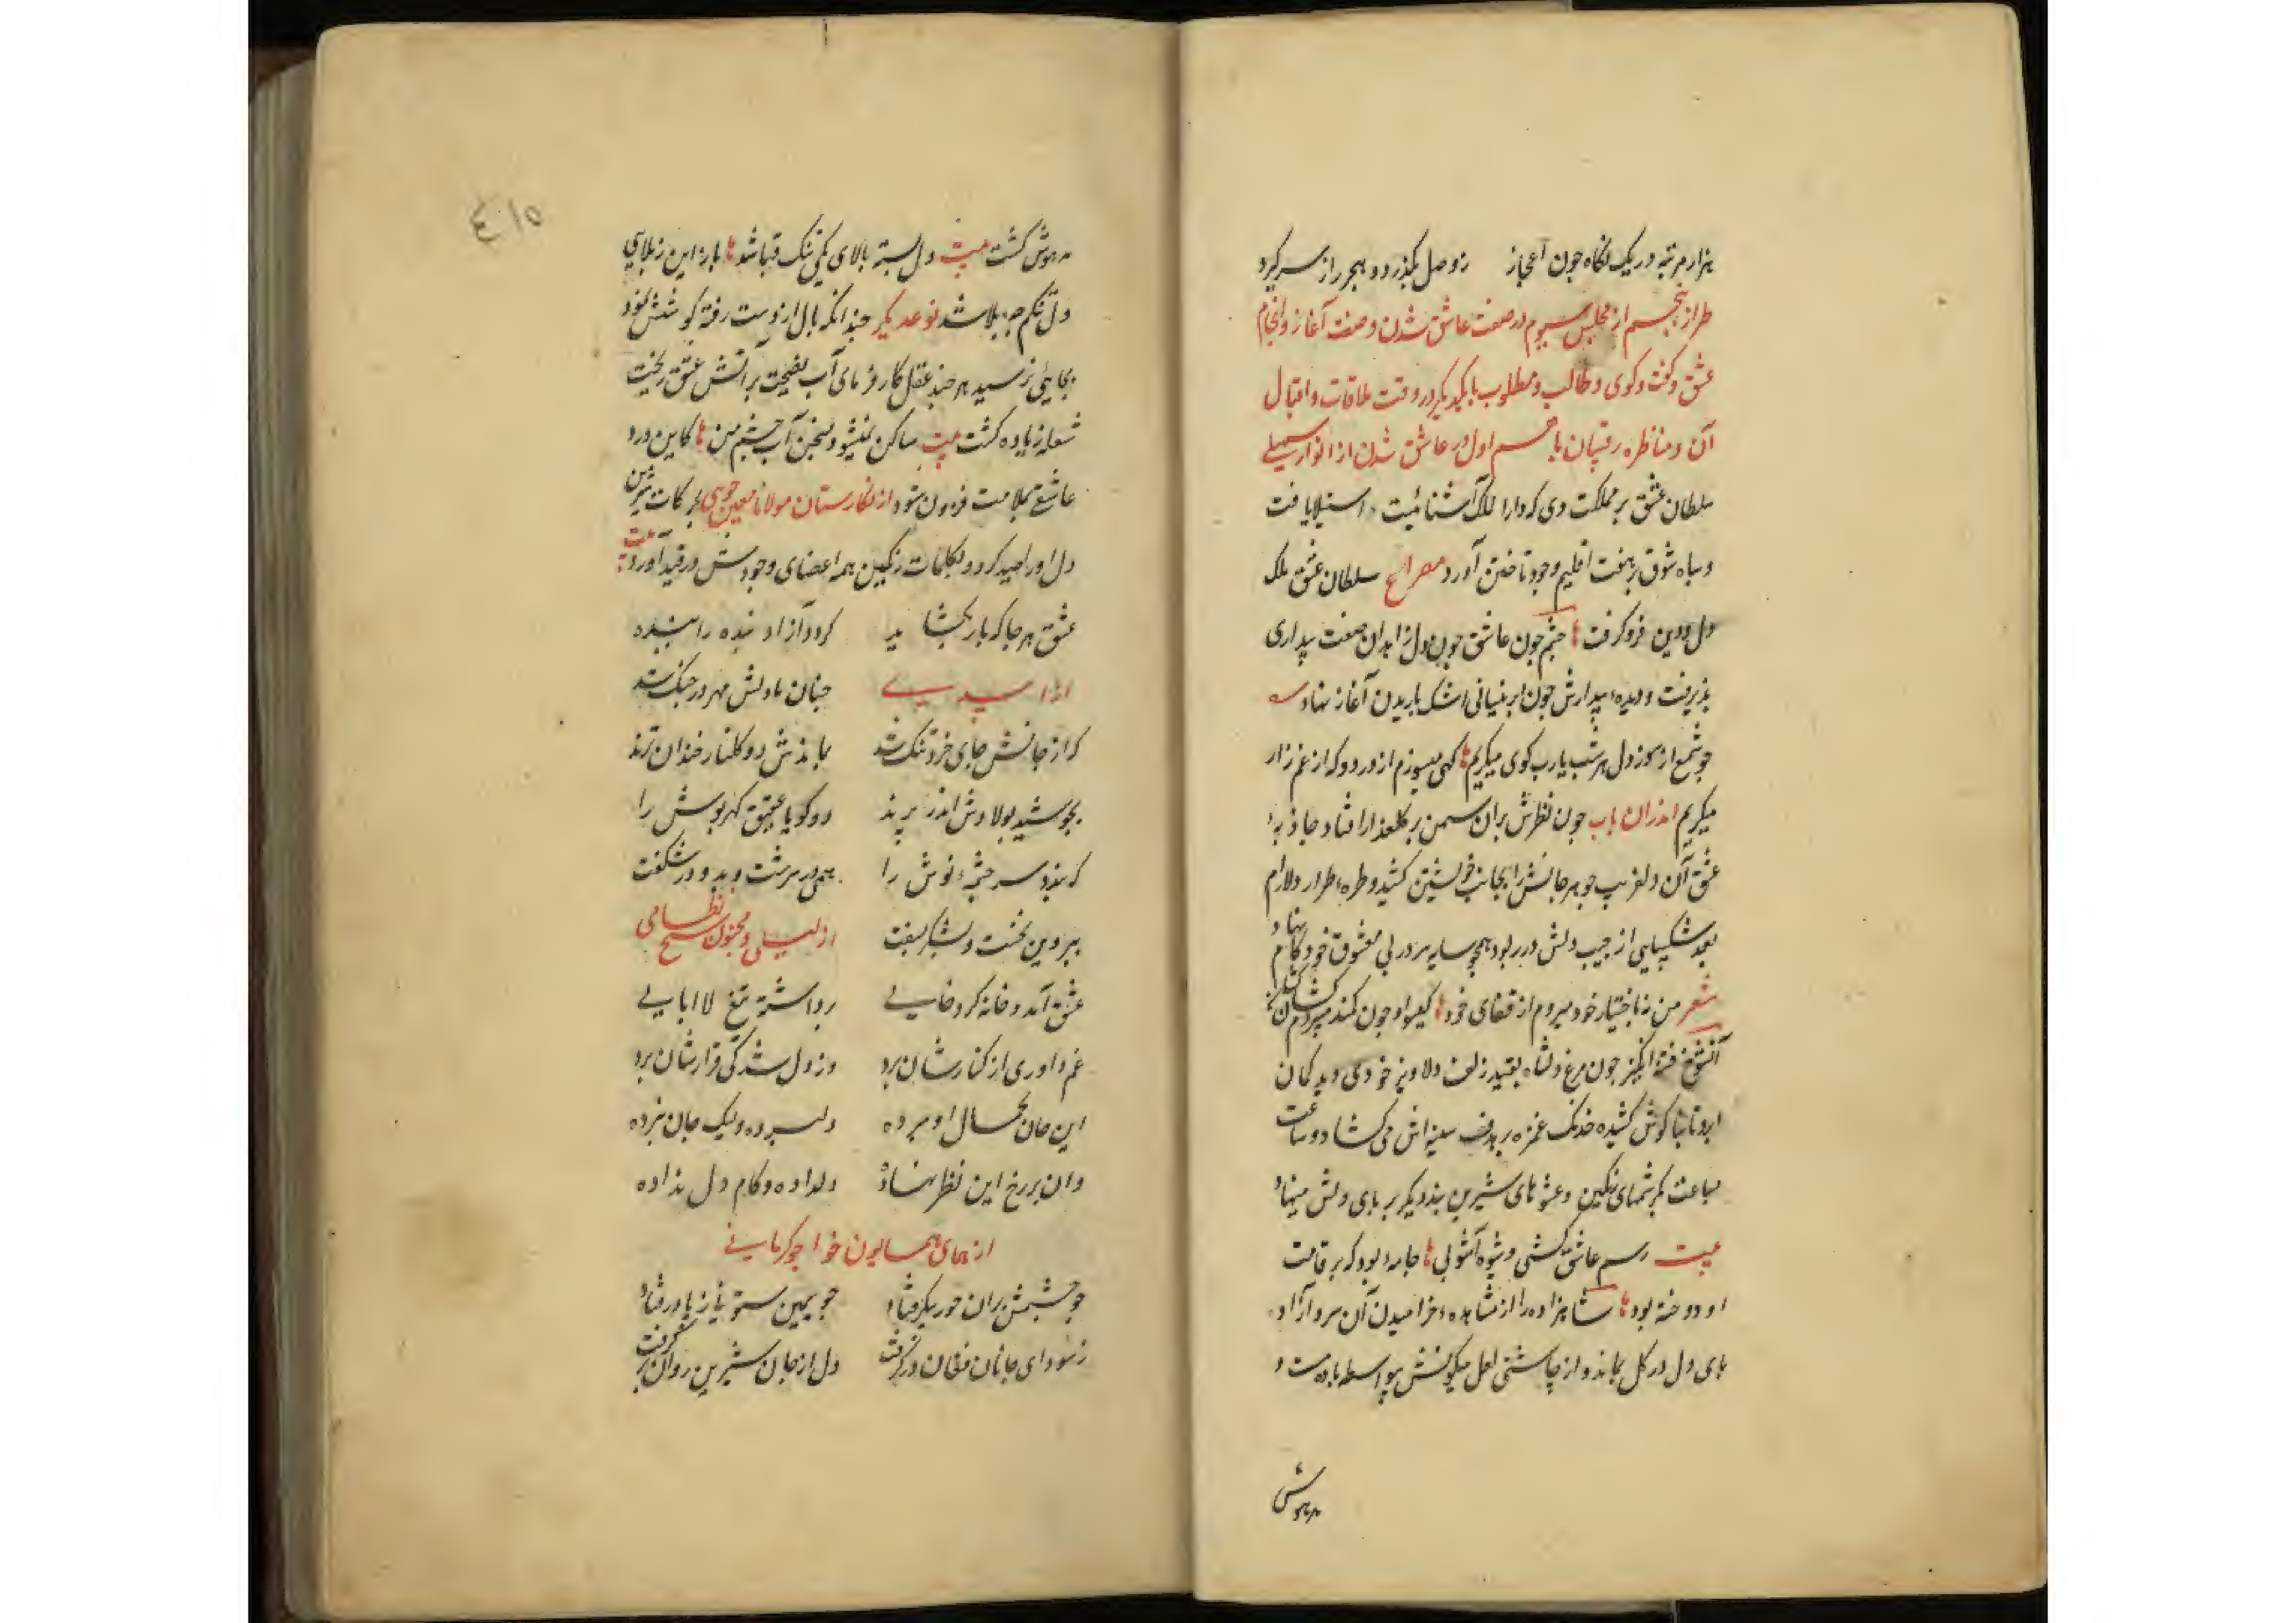 هزار مرتبه در یک نگاه چون اعجاز زوصل بگذرد و هجر را ز سر گیرد
طراز پنجم از مجلس سیوم در صفت عاشق شدن و صفت آغاز و انجام
عشق و گفت و گوی و طالب و مطلوب با یکدیگر در وقت ملاقات و اقبال
آن و مناظره رقیبان با هم قسم اول در عاشق شدن از انوار سهیلی
سلطان عشق بر مملکت دی که دارالملک آشنائیت استیلا یافت
و سپاه شوق بر هفت اقلیم وجود تاختن آورد مصراع سلطان عشق ملک
دل و دین فرو گرفت چشم چون عاشق چون دل زاهدان صفت بیداری
پذیرفت و دیده بیدارش چون ابر نیسانی اشک باریدن آغاز نهاد
چو شمع از سوز دل هر شب یارب کوی میگریم کهی میسوزم از درد و که از غم زار
میگریم اندران باب چون نظرش بران سمن بر گلعذار افتاد جاذبه
عشق آن دلفریب جوهر جانش را بجانب خویشتن کشید و طره طرار دلارام
نقد شکیبایی از جیب دلش در ربود همچو سایه سر در پی معشوق خود گام نهاد
شعر من نه باختیار خود میروم از قفای خود گیسو او چون کمند میبردم کشان کشان
آن شوخ فتنه انگیز چون مرغ دل شاه بقید زلف دلاویز خودی دید کمان
ابرو تا بناگوش کشیده خدنگ غمزه بر هدف سینه اش می گشاد و ساعت
بساعت بکرشمهای رنگین و عشوهای شیرین بند دیگر بر پای دلش مینهاد
بیت رسم عاشق کشی و شیوه آشوبی جامه بود که بر قامت
او دوخته بود شاهزاده را از مشاهده خرامیدن آن سرو آزاد
پای دل در گل بماند و از چاشنی لعل میگونش بیواسطه باده مست و
مدهوش
٤١٥
مدهوش گشت بیت دل بسته بالای یکی تنگ قبا شد باز این ز بلایی
دل تنکم چه بلا شد نوعدیگر چندانکه بال از دست رفته کوشش نمود
بجایی نرسید هر چند عقل کار فرمای آب نصیحت بر آتش عشق ریخت
شعله زیاده گشت بیت ساکن نمیشود سخن آب چشم من کاین درد
عاشقی بملامت فزون شود از نگارستان مولانا معین جوینی بحرکات شیرین
دل او را صید کرد و بکلمات رنگین همه اعضای وجودش در قید آورد بیت
عشق هر جا که بار بگشاید کرد آزاد بنده را بنده
از اسدی چنان با دلش مهر در جنگ شد
که از جانش جای خرد تنگ شد بماندش دو گلنار خندان نژند
بجوشید پولادش اندر پرند دو گویا عقیق گهرپوش را
که بندد سر چشمه نوش را همی در سرشت وبد و در شگفت
بپروین نخست و بشکر بسفت از لیلی و مجنون شیخ نظامی
عشق آمد و خانه کرد خالی برداشته تیغ لا ابالی
غم داد و دل از کنارشان برد وز دل شدگی قرارشان برد
این جان بجمال او سپرده دل برده ولیک جان نبرده
وان بر رخ این نظر نهاده دل داده و کام دل نداده
از همای همایون خواجو کرمانی
چو چشمش بران حور پیکر فتاد چو سیمین ستونی ز پا در فتاد
ز سودای جانان فغان در گرفت دل از جان شیرین روان بر گرفت